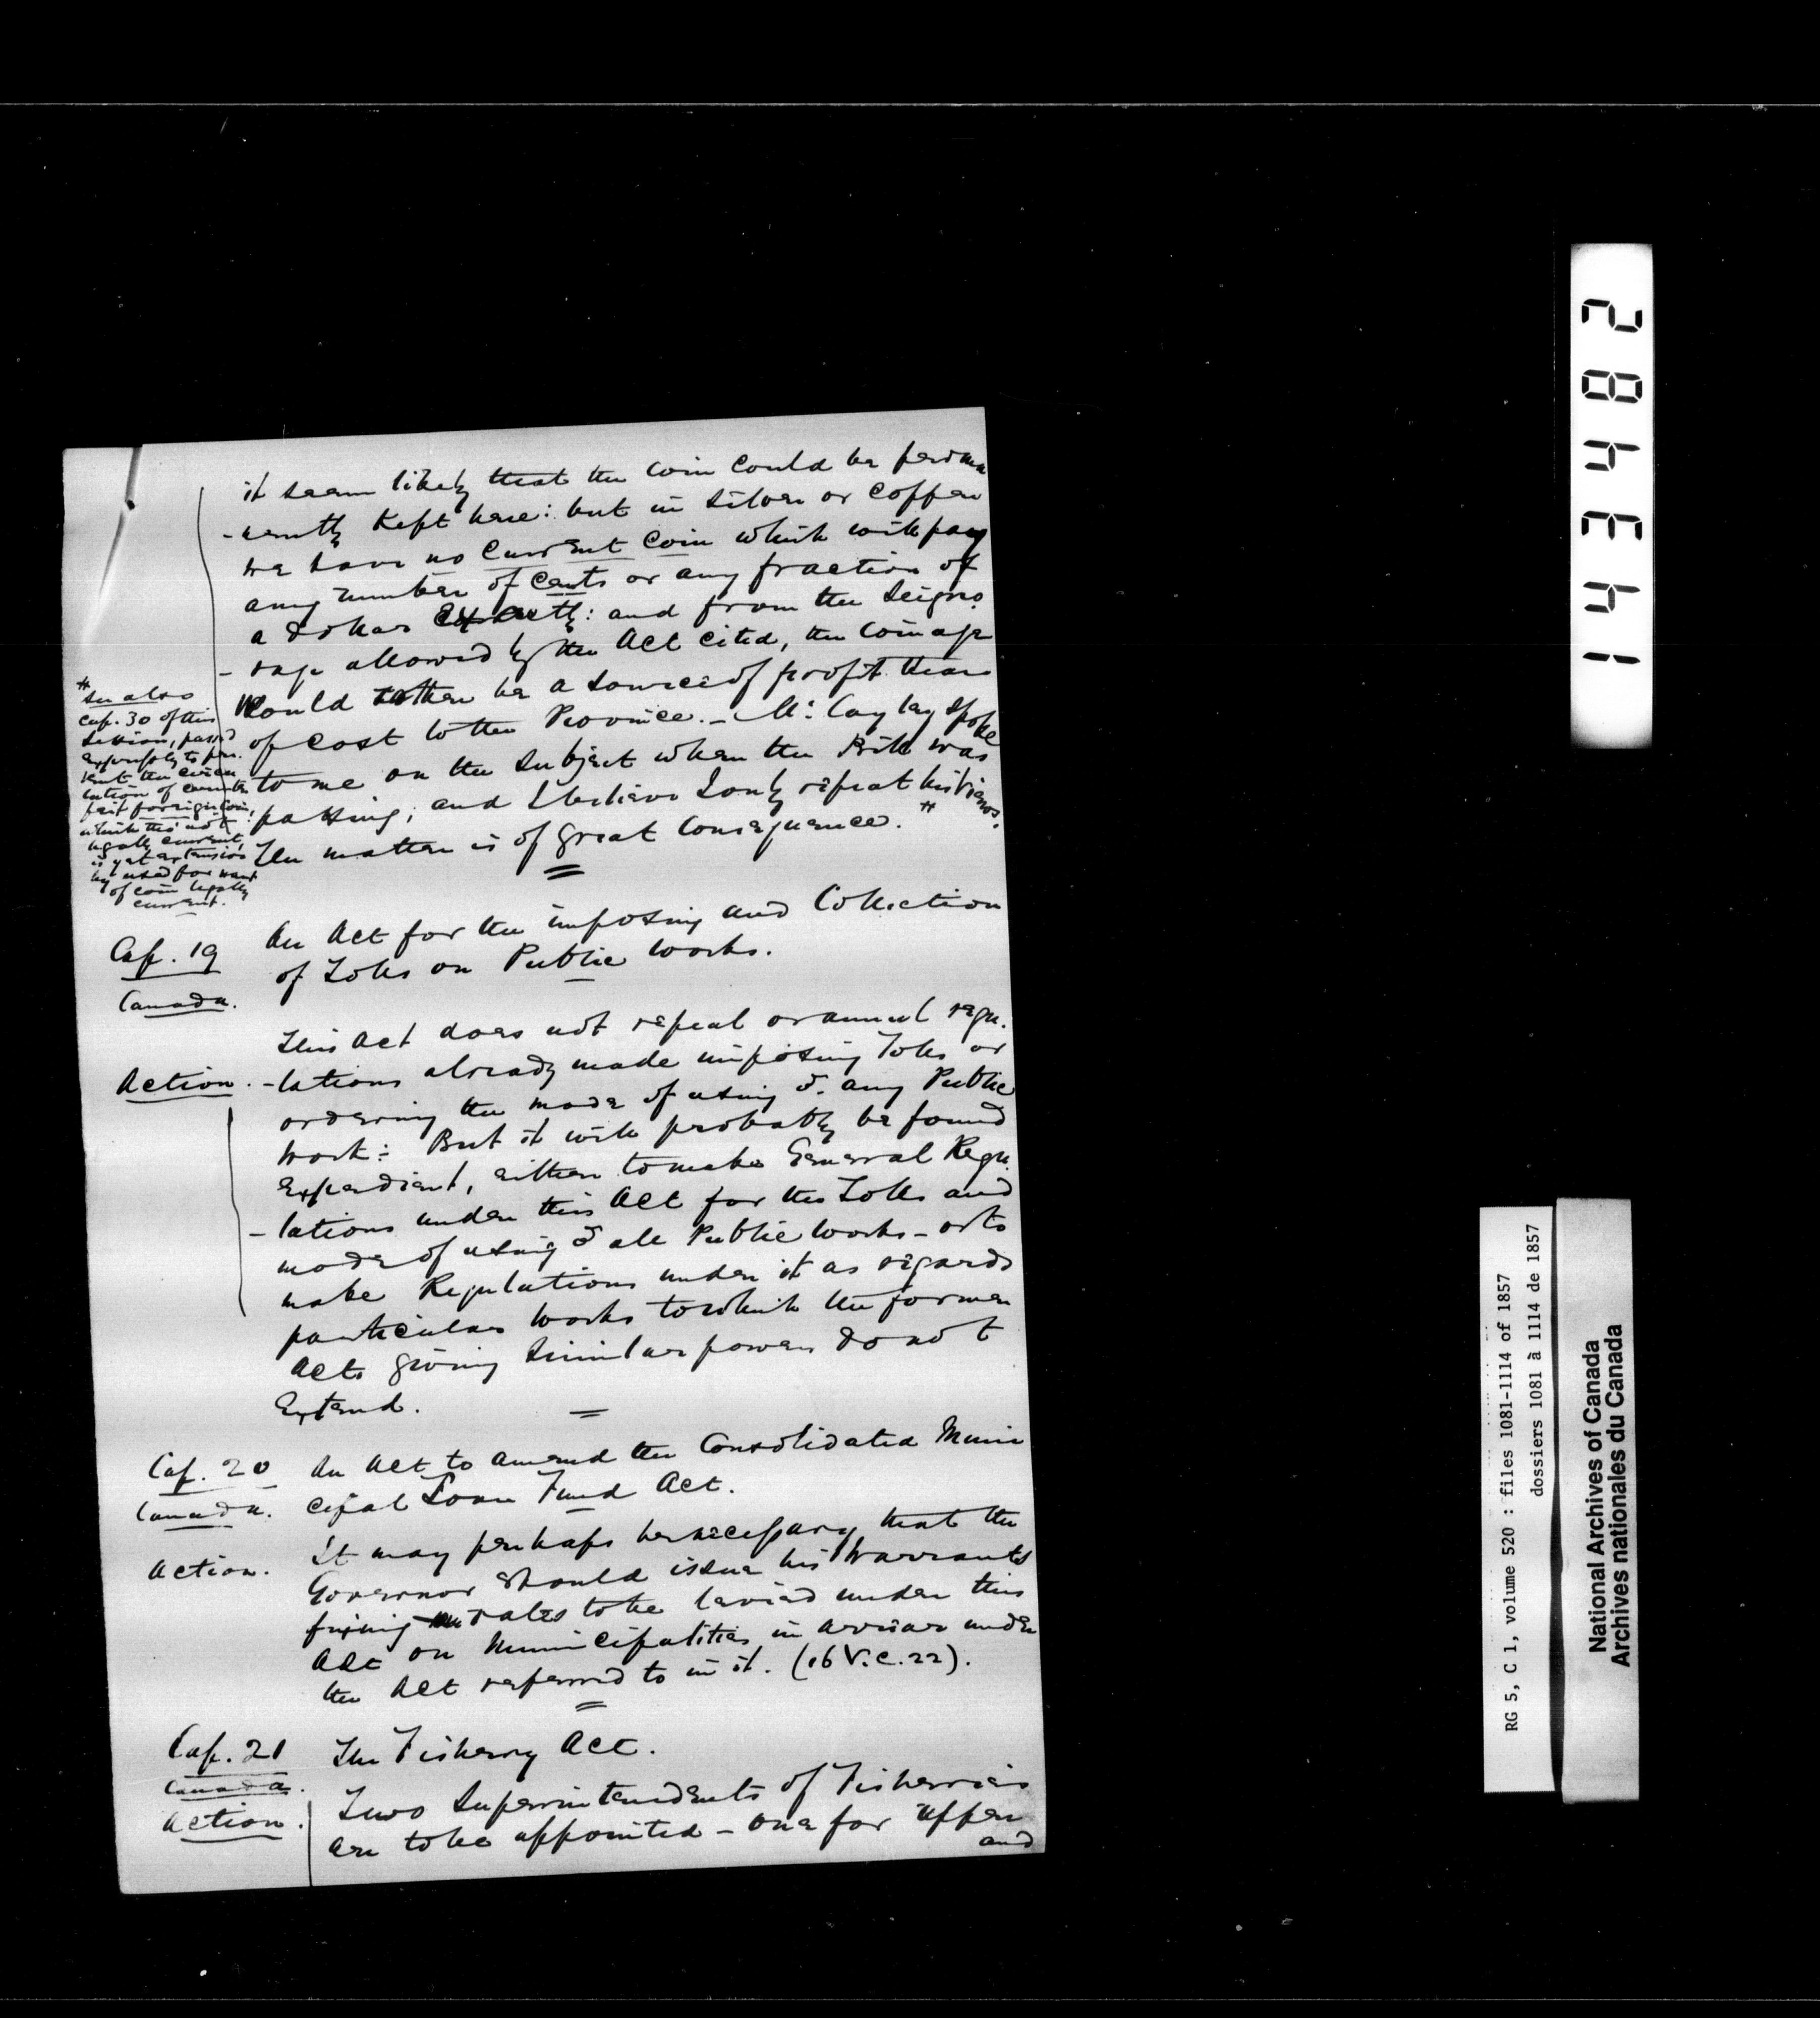 it seem likely that the coin could be perma
-nently kept here: but in silver or copper
we have no current coin which will pay
any number of cents or any fraction of
a dollar exactly: and from the seigno.
-rage allowed by the Act cited, the coinage
would rather be a source of profit than
of cost to the Province. - Mr. Cayley spoke
to me on the subject when the Bill was
passing, and I believe I only repeat his views.
The matter is of great consequence. *
* See also
cap. 30 of this
Session, passed
expressly to pre.
vent the circu
lation of counter
feit foreign coin,
which tho' not
legally current,
is yet extensive
ly used for want
of coin legally
current.
Cap. 19
Canada.
An Act for the imposing and Collection
of Tolls on Public Works.
Action.
This Act does not repeal or annul regu.
-lations already made imposing Tolls or
ordering the mode of using &. any Public
work: But it will probably be found
expedient, either to make General Regu.
-lations under this Act for the Tolls and
mode of using & all Public Works - or to
make Regulations under it as regards
particular works to which the former
Acts giving similar powers do not
extend.
Cap. 20
Canada.
An Act to amend the Consolidated Muni
cipal Loan Fund Act.
Action.
It may perhaps be necessary that the
Governor should issue his Warrants
fixing rates to be levied under this
Act on Municipalities in arrear under
the Act referred to in it. (16 V.c.22).
Cap. 21
Canada.
The Fishery Act.
Action.
Two Superintendents of Fisheries
are to be appointed - one for Upper
and
144342
RG 5, C 1, volume 520 : files 1081-1114 of 1857
dossiers 1081 à 1114 de 1857
National Archives of Canada
Archives nationales du Canada